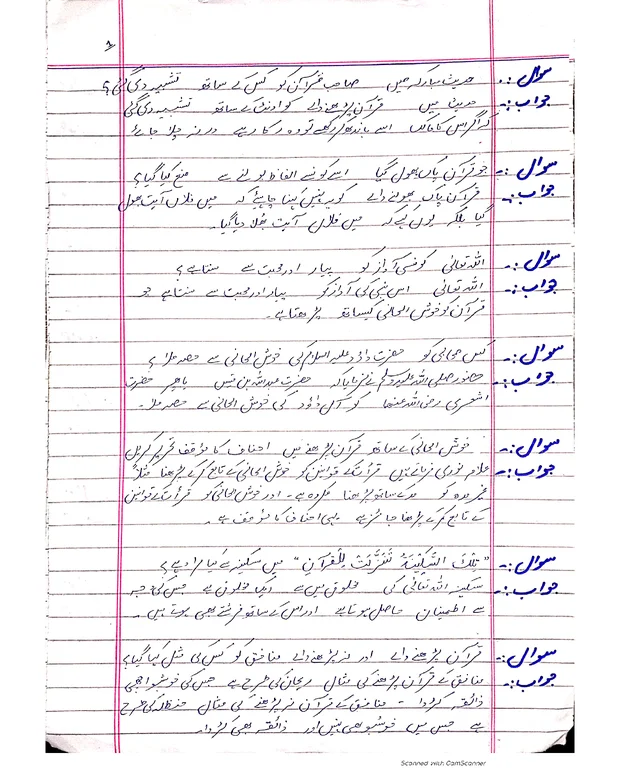 سوال:۔ حدیث مبارکہ میں صاحب قرآن کو کس کے ساتھ تشبیہ دی گئی؟
جواب:۔ حدیث میں قرآن پڑھنے والے کو اونٹ کے ساتھ تشبیہ دی گئی
کہ اگر اس کا مالک اسے باندھ کر رکھے تو وہ رکا رہے ورنہ چلا جائے
سوال:۔ جو قرآن پاک بھول گیا اسے کونسے الفاظ بولنے سے منع کیا گیا؟
جواب:۔ قرآن پاک بھولنے والے کو یہ نہیں کہنا چاہئے کہ میں فلاں آیت بھول
گیا بلکہ یوں کہے کہ میں فلاں آیت بھلا دیا گیا۔
سوال:۔ اللہ تعالیٰ کونسی آواز کو پیار اور محبت سے سنتا ہے؟
جواب:۔ اللہ تعالیٰ اس نبی کی آواز کو پیار اور محبت سے سنتا ہے جو
قرآن کو خوش الحانی کیساتھ پڑھتا ہے۔
سوال:۔ کس صحابی کو حضرت داؤد علیہ السلام کی خوش الحانی سے حصہ ملا؟
جواب:۔ حضور صلی اللہ علیہ وسلم نے فرمایا کہ حضرت عبداللہ بن قیس یا پھر حضرت
اشعری رضی اللہ عنھما کو آل داؤد کی خوش الحانی سے حصہ ملا۔
سوال:۔ خوش الحانی کے ساتھ قرآن پڑھنے میں احناف کا مؤقف تحریر کریں
جواب:۔ علامہ نووی فرماتے ہیں قرأت کے قوانین کو خوش الحانی کے تابع کر کے پڑھنا مثلاً
غیر مدہ کو مد کے ساتھ پڑھنا مکروہ ہے۔ اور خوش الحانی کو قرأت کے قوانین
کے تابع کر کے پڑھنا جائز ہے یہی احناف کا مؤقف ہے۔
سوال:۔ "تِلْكَ السَّكِيْنَةُ تَنَزَّلَتْ لِلْقُرْآنِ" میں سکینہ سے کیا مراد ہے؟
جواب:۔ سکینہ اللہ تعالیٰ کی مخلوق میں سے ایک مخلوق ہے جس کی وجہ
سے اطمینان حاصل ہوتا ہے اور اس کے ساتھ فرشتے بھی ہوتے ہیں۔
سوال:۔ قرآن پڑھنے والے اور نہ پڑھنے والے منافق کو کس کی مثل کہا گیا؟
جواب:۔ منافق کے قرآن پڑھنے کی مثال ریحان کی طرح ہے جس کی خوشبو اچھی
ذائقہ کڑوا - منافق کے قرآن نہ پڑھنے کی مثال حنظلہ کی طرح
ہے جس میں خوشبو بھی نہیں اور ذائقہ بھی کڑوا۔
Scanned with CamScanner